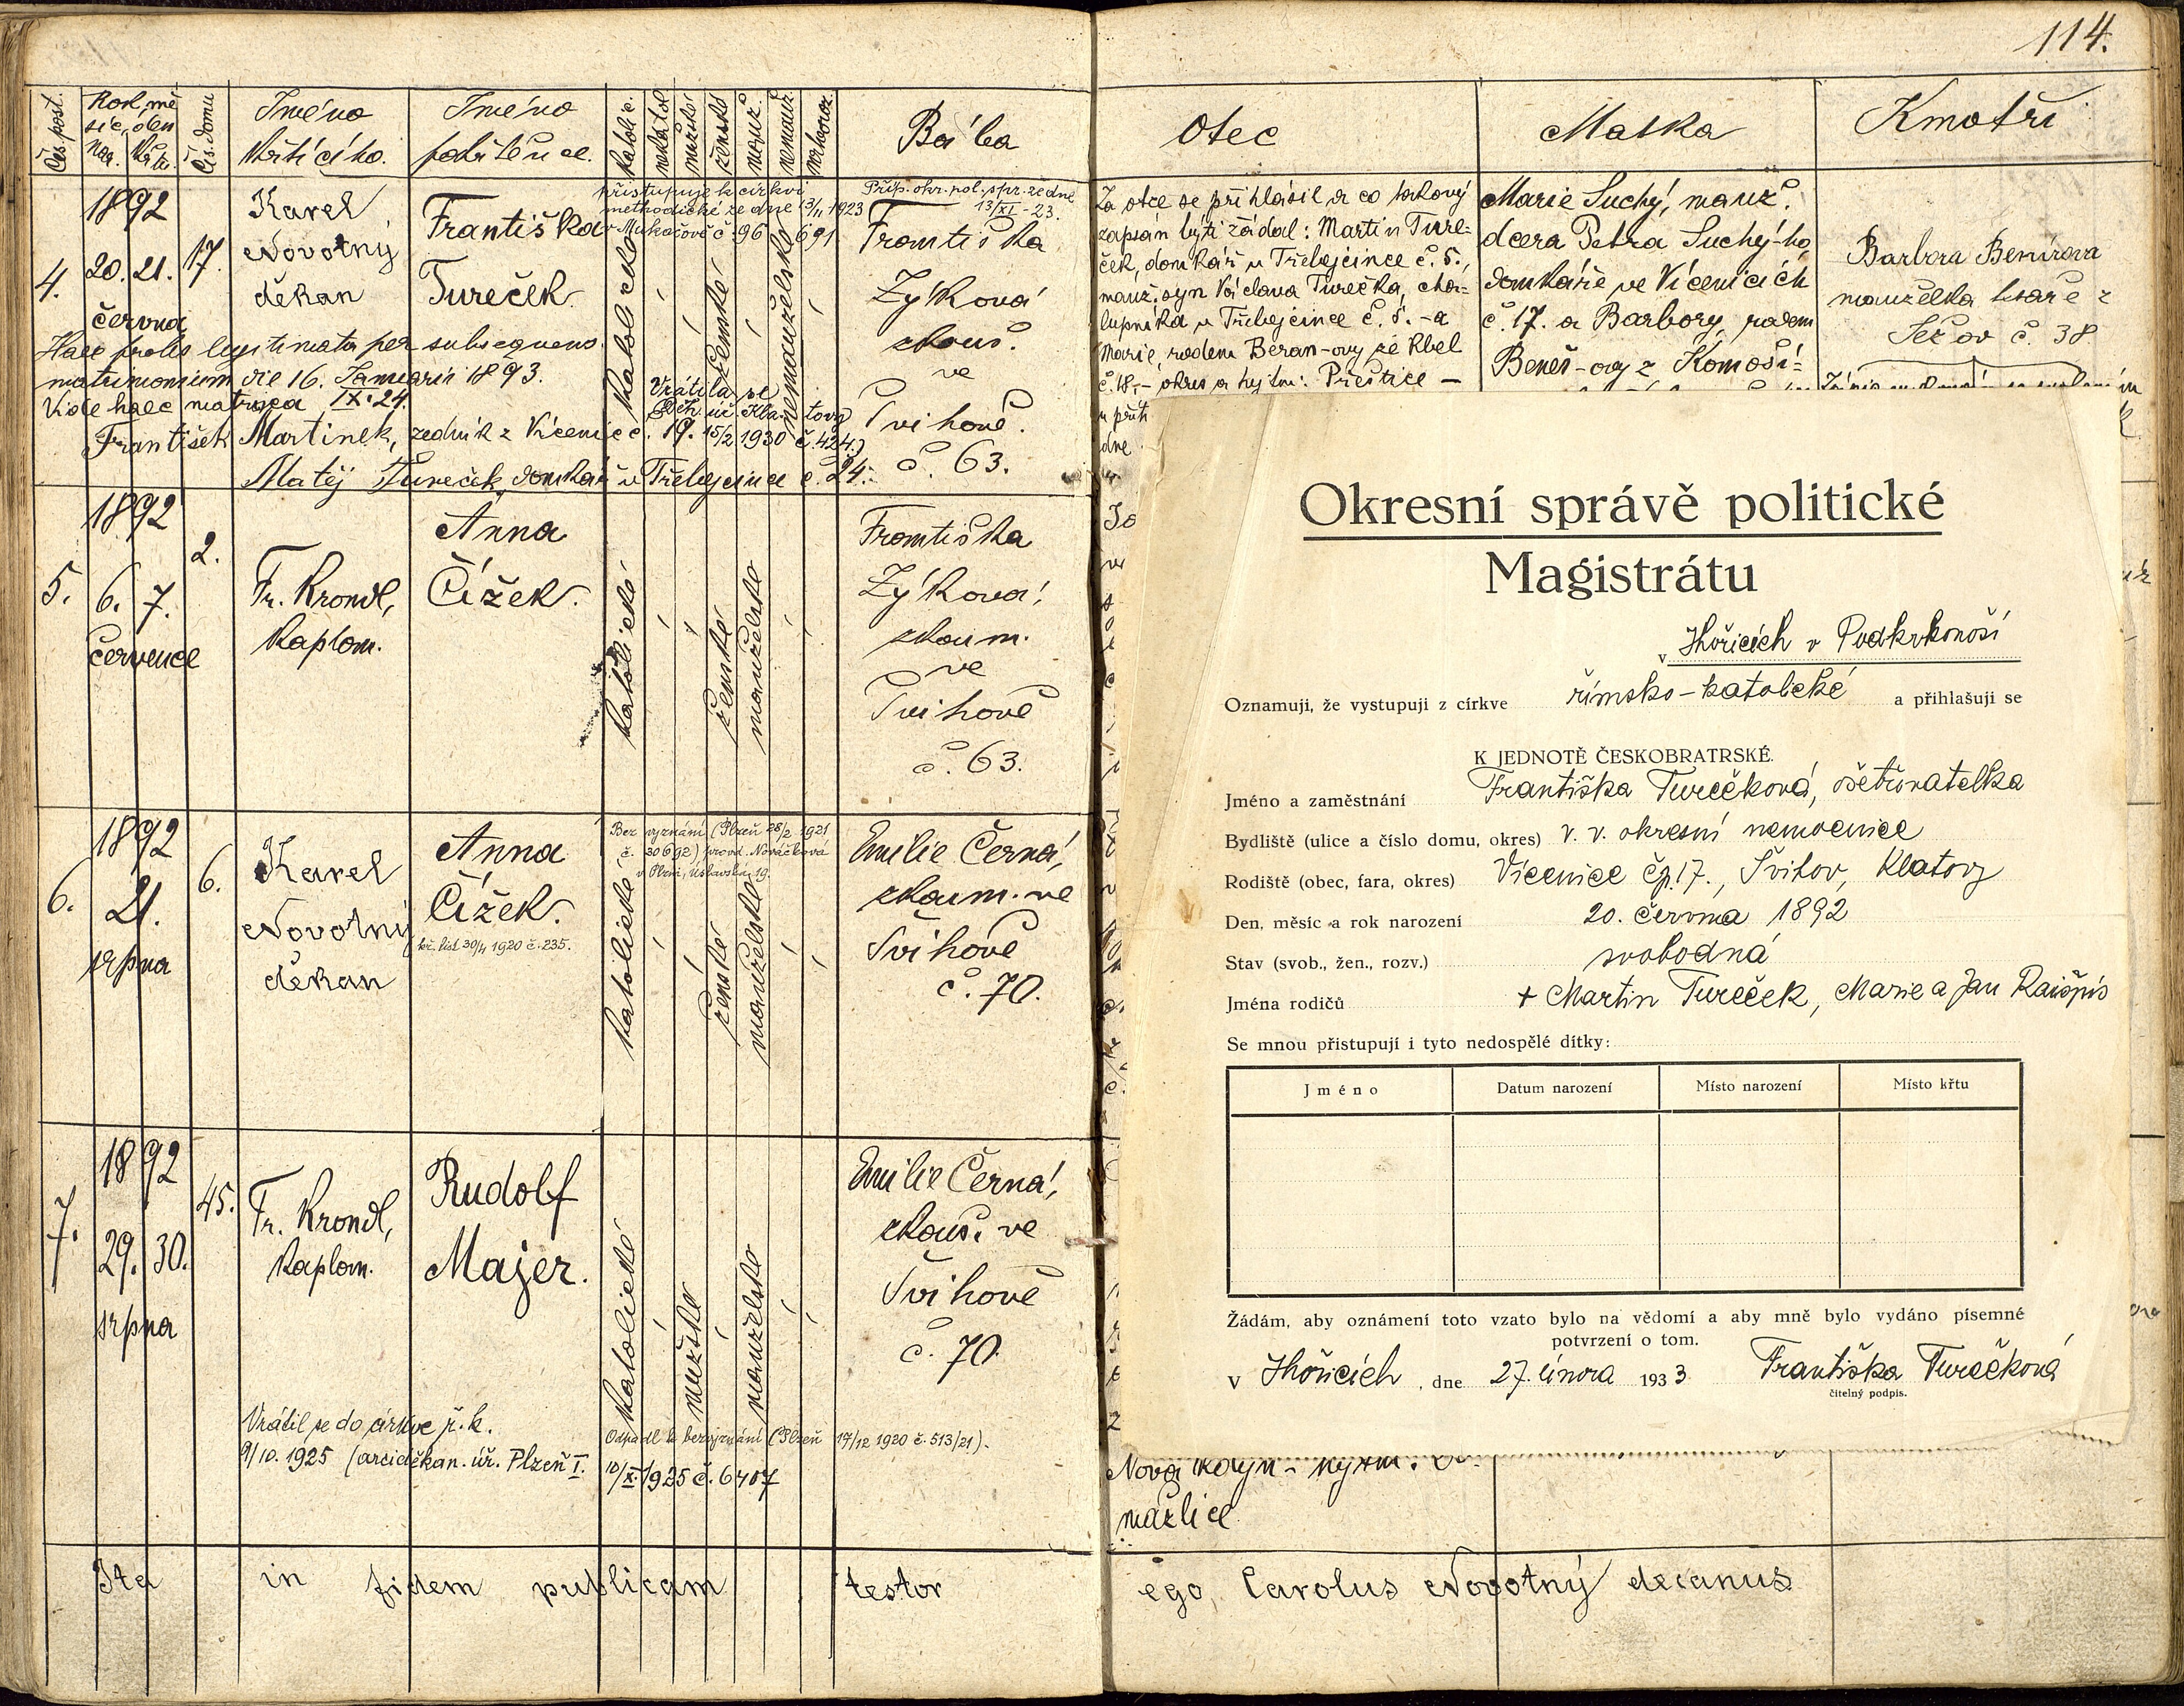 114.
Čís. post.
Rok, mě-
síc, den
nar. křtu.
Čís. domu
Jméno
křtícího.
Jméno
pokřtěnce.
katolic.
nekatol
mužské
ženské
manž.
nemanž.
mrtvoroz.
Bába
Otec
Matka
Kmotři
4.
1892
20. 21.
června
17.
Karel
Novotný
děkan
Františka
Tureček.
přistupuje k církvi
methodické ze dne 13/11 1923
v Mukačově č. 96 691
katolické
ženské
nemanželské
Příp. okr. pol. spr. ze dne
13/XI - 23.
Františka
Zýková
zkouš.
ve
Švihově.
č. 63.
Haec proles legitimata per subsequens
matrimonium die 16. Januarii 1893.
Vide haec matrica IX. 24.
Vrátila se
Děk. úř. Klatovy
19. 15/2 1930 č. 424.)
František Martinek, zedník z Vícenic č. 19.
Matěj Tureček, domkář v Třebejcince č. 24.
Za otce se přihlásil a co takový
zapsán býti žádal: Martin Ture-
ček, domkář u Třebejcince č. 5.,
manž. syn Václava Turečka, cha-
lupníka u Třebejcince č. 5. - a
Marie rodem Beran-ovy ze Kbel
č. 18,- okres a hejtm: Přeštice -
Marie Suchý, manž.
dcera Petra Suchý-ho
domkáře ve Vícenicích
č. 17. a Barbory, rodem
Beneš-ovy z Komoší-
Barbora Benírova
manželka tesaře z
Sečov č. 38
5.
1892
6. 7.
července
2.
Fr. Krondl,
kaplan.
Anna
Čížek.
katolické
ženské
manželské
Františka
Zýková,
zkoum.
ve
Švihově
č. 63.
6.
1892
21.
srpna
6.
Karel
Novotný
děkan
Anna
Čížek.
kř. list 30/4 1920 č. 235.
Bez vyznání (Plzeň 28/2 1921
č. 30692) provd. Nováčková
v Plzni, Úslavská 19.
katolické
ženské
manželské
Emilie Černá,
zkoum. ve
Švihově
č. 70.
7.
1892
29. 30.
srpna
45.
Fr. Krondl,
kaplan.
Rudolf
Majer.
katolické
mužské
manželské
Emilie Černá,
zkouš. ve
Švihově
č. 70.
Vrátil se do církve ř. k.
9/10. 1925 (arciděkan. úř. Plzeň I.
Odpadl k bezvyznání (Plzeň 17/12 1920 č. 513/21).
10/X. 1925 č. 6407
mažlice
Ita in fidem publicam testor
ego, Carolus Novotný decanus
Okresní správě politické
Magistrátu
v Hořicích v Podkrkonoší
Oznamuji, že vystupuji z církve římsko-katolické a přihlašuji se
K JEDNOTĚ ČESKOBRATRSKÉ.
Jméno a zaměstnání Františka Turečková, ošetřovatelka
Bydliště (ulice a číslo domu, okres) v. v. okresní nemocnice
Rodiště (obec, fara, okres) Vícenice čp. 17., Švihov, Klatovy
Den, měsíc a rok narození 20. června 1892
Stav (svob., žen., rozv.) svobodná
Jména rodičů + Martin Tureček, Marie a Jan Raišpis
Se mnou přistupují i tyto nedospělé dítky:
Jméno Datum narození Místo narození Místo křtu
Žádám, aby oznámení toto vzato bylo na vědomí a aby mně bylo vydáno písemné
potvrzení o tom.
V Hořicích, dne 27. února 1933 Františka Turečková
čitelný podpis.